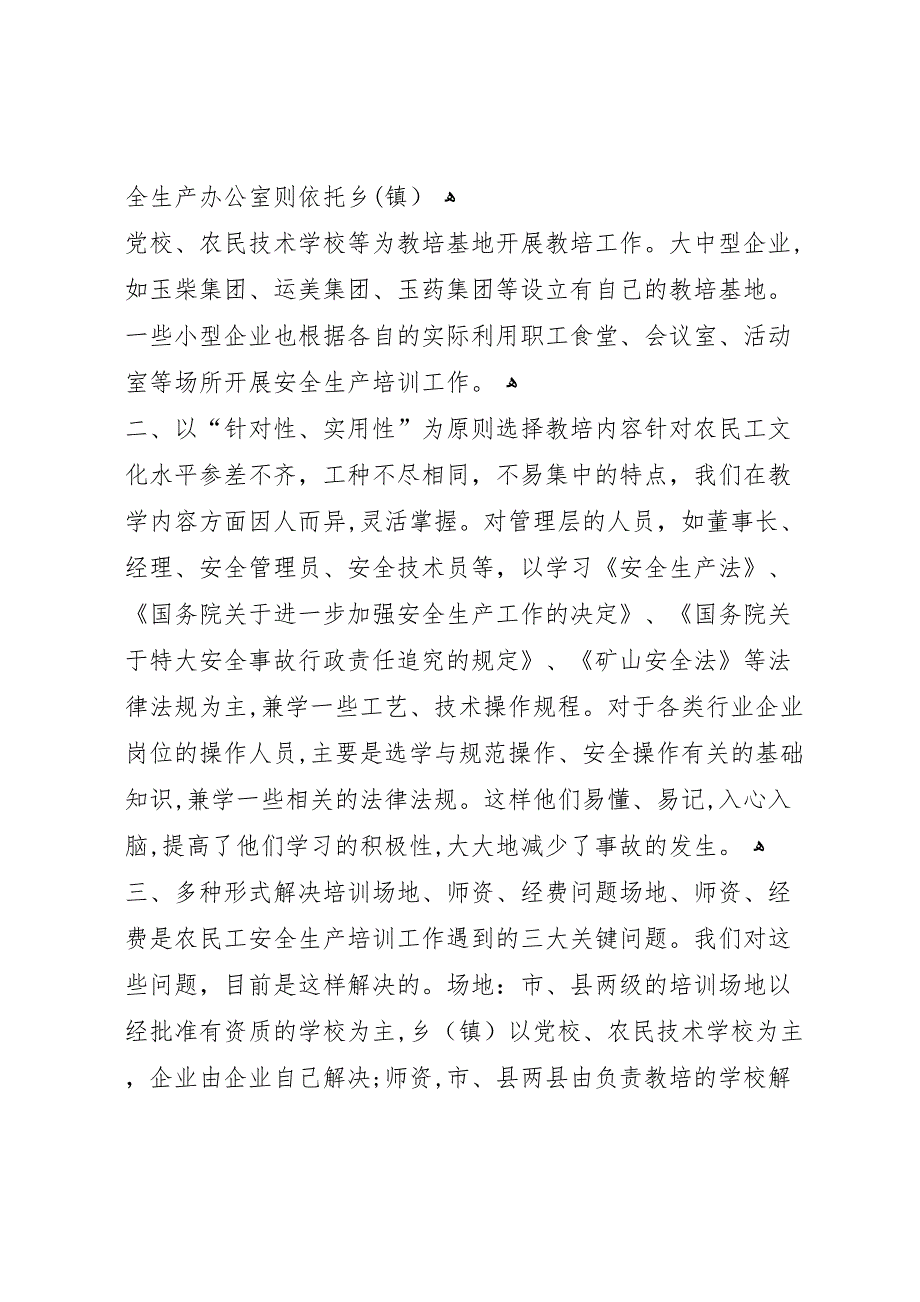 全生产办公室则依托乡(镇） ﻫ
党校、农民技术学校等为教培基地开展教培工作。大中型企业,
如玉柴集团、运美集团、玉药集团等设立有自己的教培基地。
一些小型企业也根据各自的实际利用职工食堂、会议室、活动
室等场所开展安全生产培训工作。 ﻫ
二、以“针对性、实用性”为原则选择教培内容针对农民工文
化水平参差不齐，工种不尽相同，不易集中的特点，我们在教
学内容方面因人而异,灵活掌握。对管理层的人员，如董事长、
经理、安全管理员、安全技术员等，以学习《安全生产法》、
《国务院关于进一步加强安全生产工作的决定》、《国务院关
于特大安全事故行政责任追究的规定》、《矿山安全法》等法
律法规为主,兼学一些工艺、技术操作规程。对于各类行业企业
岗位的操作人员,主要是选学与规范操作、安全操作有关的基础
知识,兼学一些相关的法律法规。这样他们易懂、易记,入心入
脑,提高了他们学习的积极性,大大地减少了事故的发生。 ﻫ
三、多种形式解决培训场地、师资、经费问题场地、师资、经
费是农民工安全生产培训工作遇到的三大关键问题。我们对这
些问题，目前是这样解决的。场地：市、县两级的培训场地以
经批准有资质的学校为主,乡（镇）以党校、农民技术学校为主
，企业由企业自己解决;师资,市、县两县由负责教培的学校解